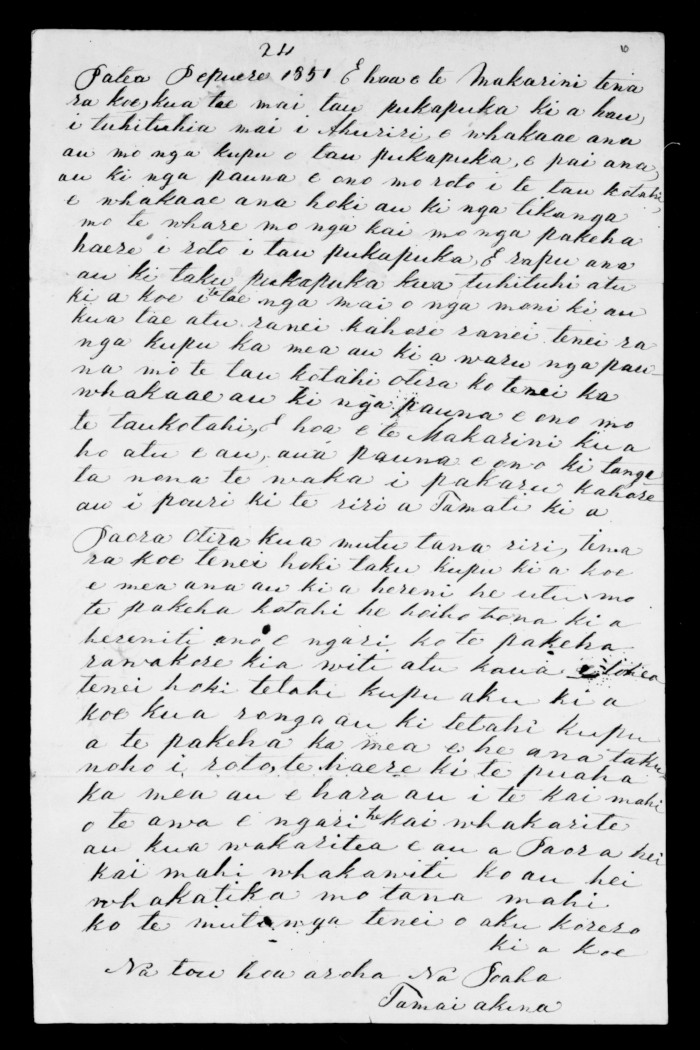 24 6
Patea Pepuere 1851 E hoa e te Makarini tena
ra koe, kua tae mai tau pukapuka ki a hau,
i tuhituhia mai i Ahuriri, e whakaae ana
au mo nga kupu o tau pukapuka, e pai ana,
au ki nga pauna e ono mo roto i te tau kotahi,
e whakaae ana hoki au ki nga tikanga
mo te whare mo nga kai mo nga pakeha
haere i roto i tau pukapuka, E rapu ana
au ki taku pukapuka kua tuhituhi atu
ki a koe i te tae nga mai o nga moni ki au
kua tae atu ranei kahore ranei tenei ra
nga kupu ka mea au ki a waru nga pau
na mo te tau kotahi otira ko tenei ka
whakaae au ki nga pauna e ono mo
te taukotahi, E hoa e te Makarini kua
ho atu e au, aua pauna e ono ki tanga
ta nona te waka i pakaru kahore
au i pouri ki te riri a Tamati ki a
Paora otira kua mutu tana riri, tena
ra koe tenei hoki taku kupu ki a koe
e mea ana au ki a hereni he utu mo
te pakeha kotahi he hoiho bona ki a
hereniti ano e ngari ko te pakeha
rawakore kia witi atu kaua
tenei hoki tetahi kupu aku ki a
koe kua ronga au ki tetahi kupu
a te pakeha ka mea e he ana taku
noho i roto, te haere ki te puaha
ka mea au e hara au i te kai mahi
o te awa e ngari he kai whakarite
au kua wakaritea e au a Paora hei
kai mahi whakawiti ko au hei
whakatika mo tana mahi
ko te mutunga tenei o aku korero
ki a koe
Na tou hoa aroha Na Poaha
Tamai akina